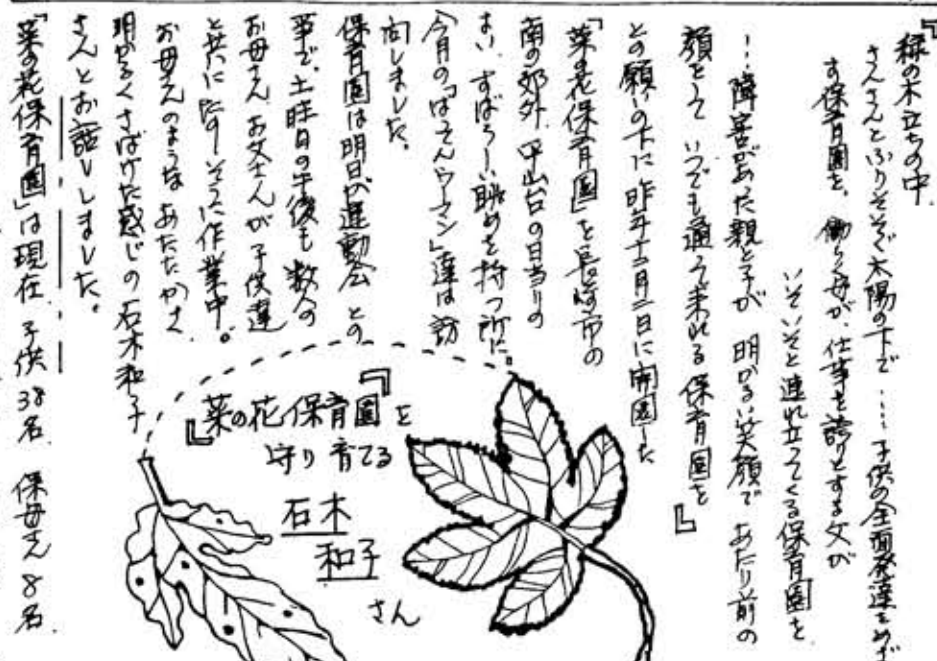 『緑の木立ちの中
さんさんとふりそそぐ太陽の下で……子供の全面発達をめざ
す保育園を、働く母が、仕事を誇りとする父が
いそいそと連れ立ってくる保育園を
…障害があった親と子が 明かるい笑顔で あたり前の
顔をして いつでも通って来れる保育園を』
との願いの下に昨年十二月二日に開園した
「菜の花保育園」を長崎市の
南の郊外 平山台の日当りの
よい、すばらしい眺めを持つ所に
今月の「はそんウーマン」達は訪
問しました。
保育園は明日が運動会 との
事で、土曜日の午後も 数人の
お母さん お父さんが 子供達
と共に にぎやかに作業中。
お母さんのような あたたかさ
明かるくさばけた感じの 石木和子
さんとお話ししました。
「菜の花保育園」は現在 子供38名 保母さん8名
『菜の花保育園』を
守り育てる
石木
和子
さん